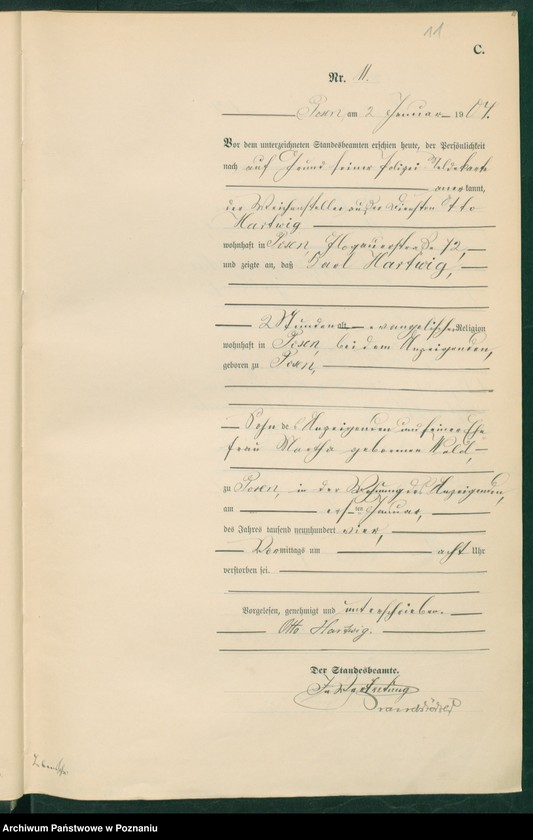 11
C.
Nr. 11.
Posen, am 2 Januar 1904.
Vor dem unterzeichneten Standesbeamten erschien heute, der Persönlichkeit
nach auf Grund seiner Polizei Meldekarte
anerkannt,
der Weichensteller außer Diensten Otto
Hartwig
wohnhaft in Posen, Glogauerstraße 72,
und zeigte an, daß Karl Hartwig,
2 Stunden alt evangelischer Religion
wohnhaft in Posen, bei dem Anzeigenden,
geboren zu Posen,
Sohn des Anzeigenden und seiner Ehe
frau Martha geborenen Wold,
zu Posen, in der Wohnung des Anzeigenden,
am ersten Januar,
des Jahres tausend neunhundert vier,
Vormittags um acht Uhr
verstorben sei.
Vorgelesen, genehmigt und unterschrieben.
Otto Hartwig.
Der Standesbeamte.
In Vertretung
Archiwum Państwowe w Poznaniu